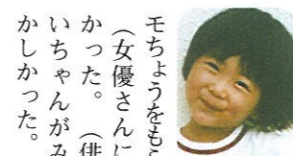 モちょうをもら
（女優さんに
かった。　（俳
いちゃんがみ
かしかった。